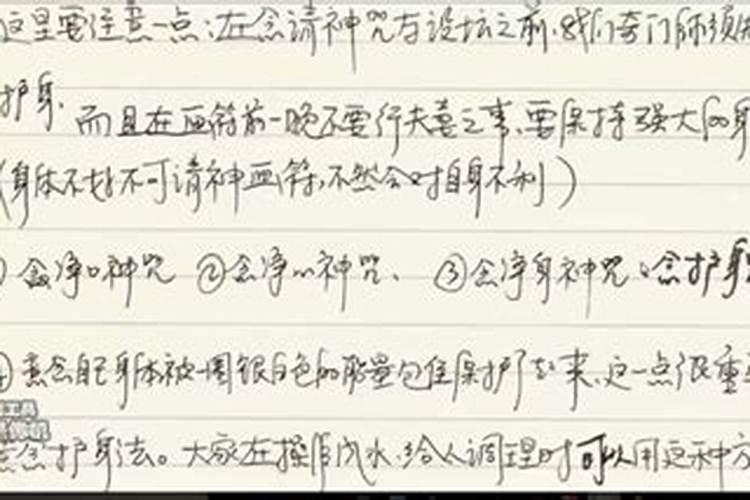 这里要注意一点:在念请神咒与设坛之前,我们奇门师须
护身,而且在画符前一晚不要行夫妻之事,要保持强大的身
(身体不好不可请神画符,不然会对自身不利)
念净口神咒 ②念净心神咒、 ③念净身神咒:念护身
意念自己身体被一圈银白色的能量包住保护了起来,这一点很重
念护身法。大家在操作风水,给人调理时可以用这种方